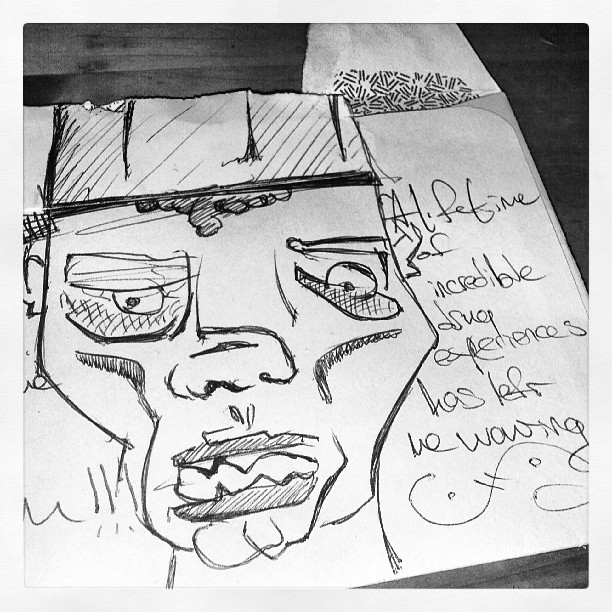 A lifetime
of
incredible
drug
experiences
has left
me waving